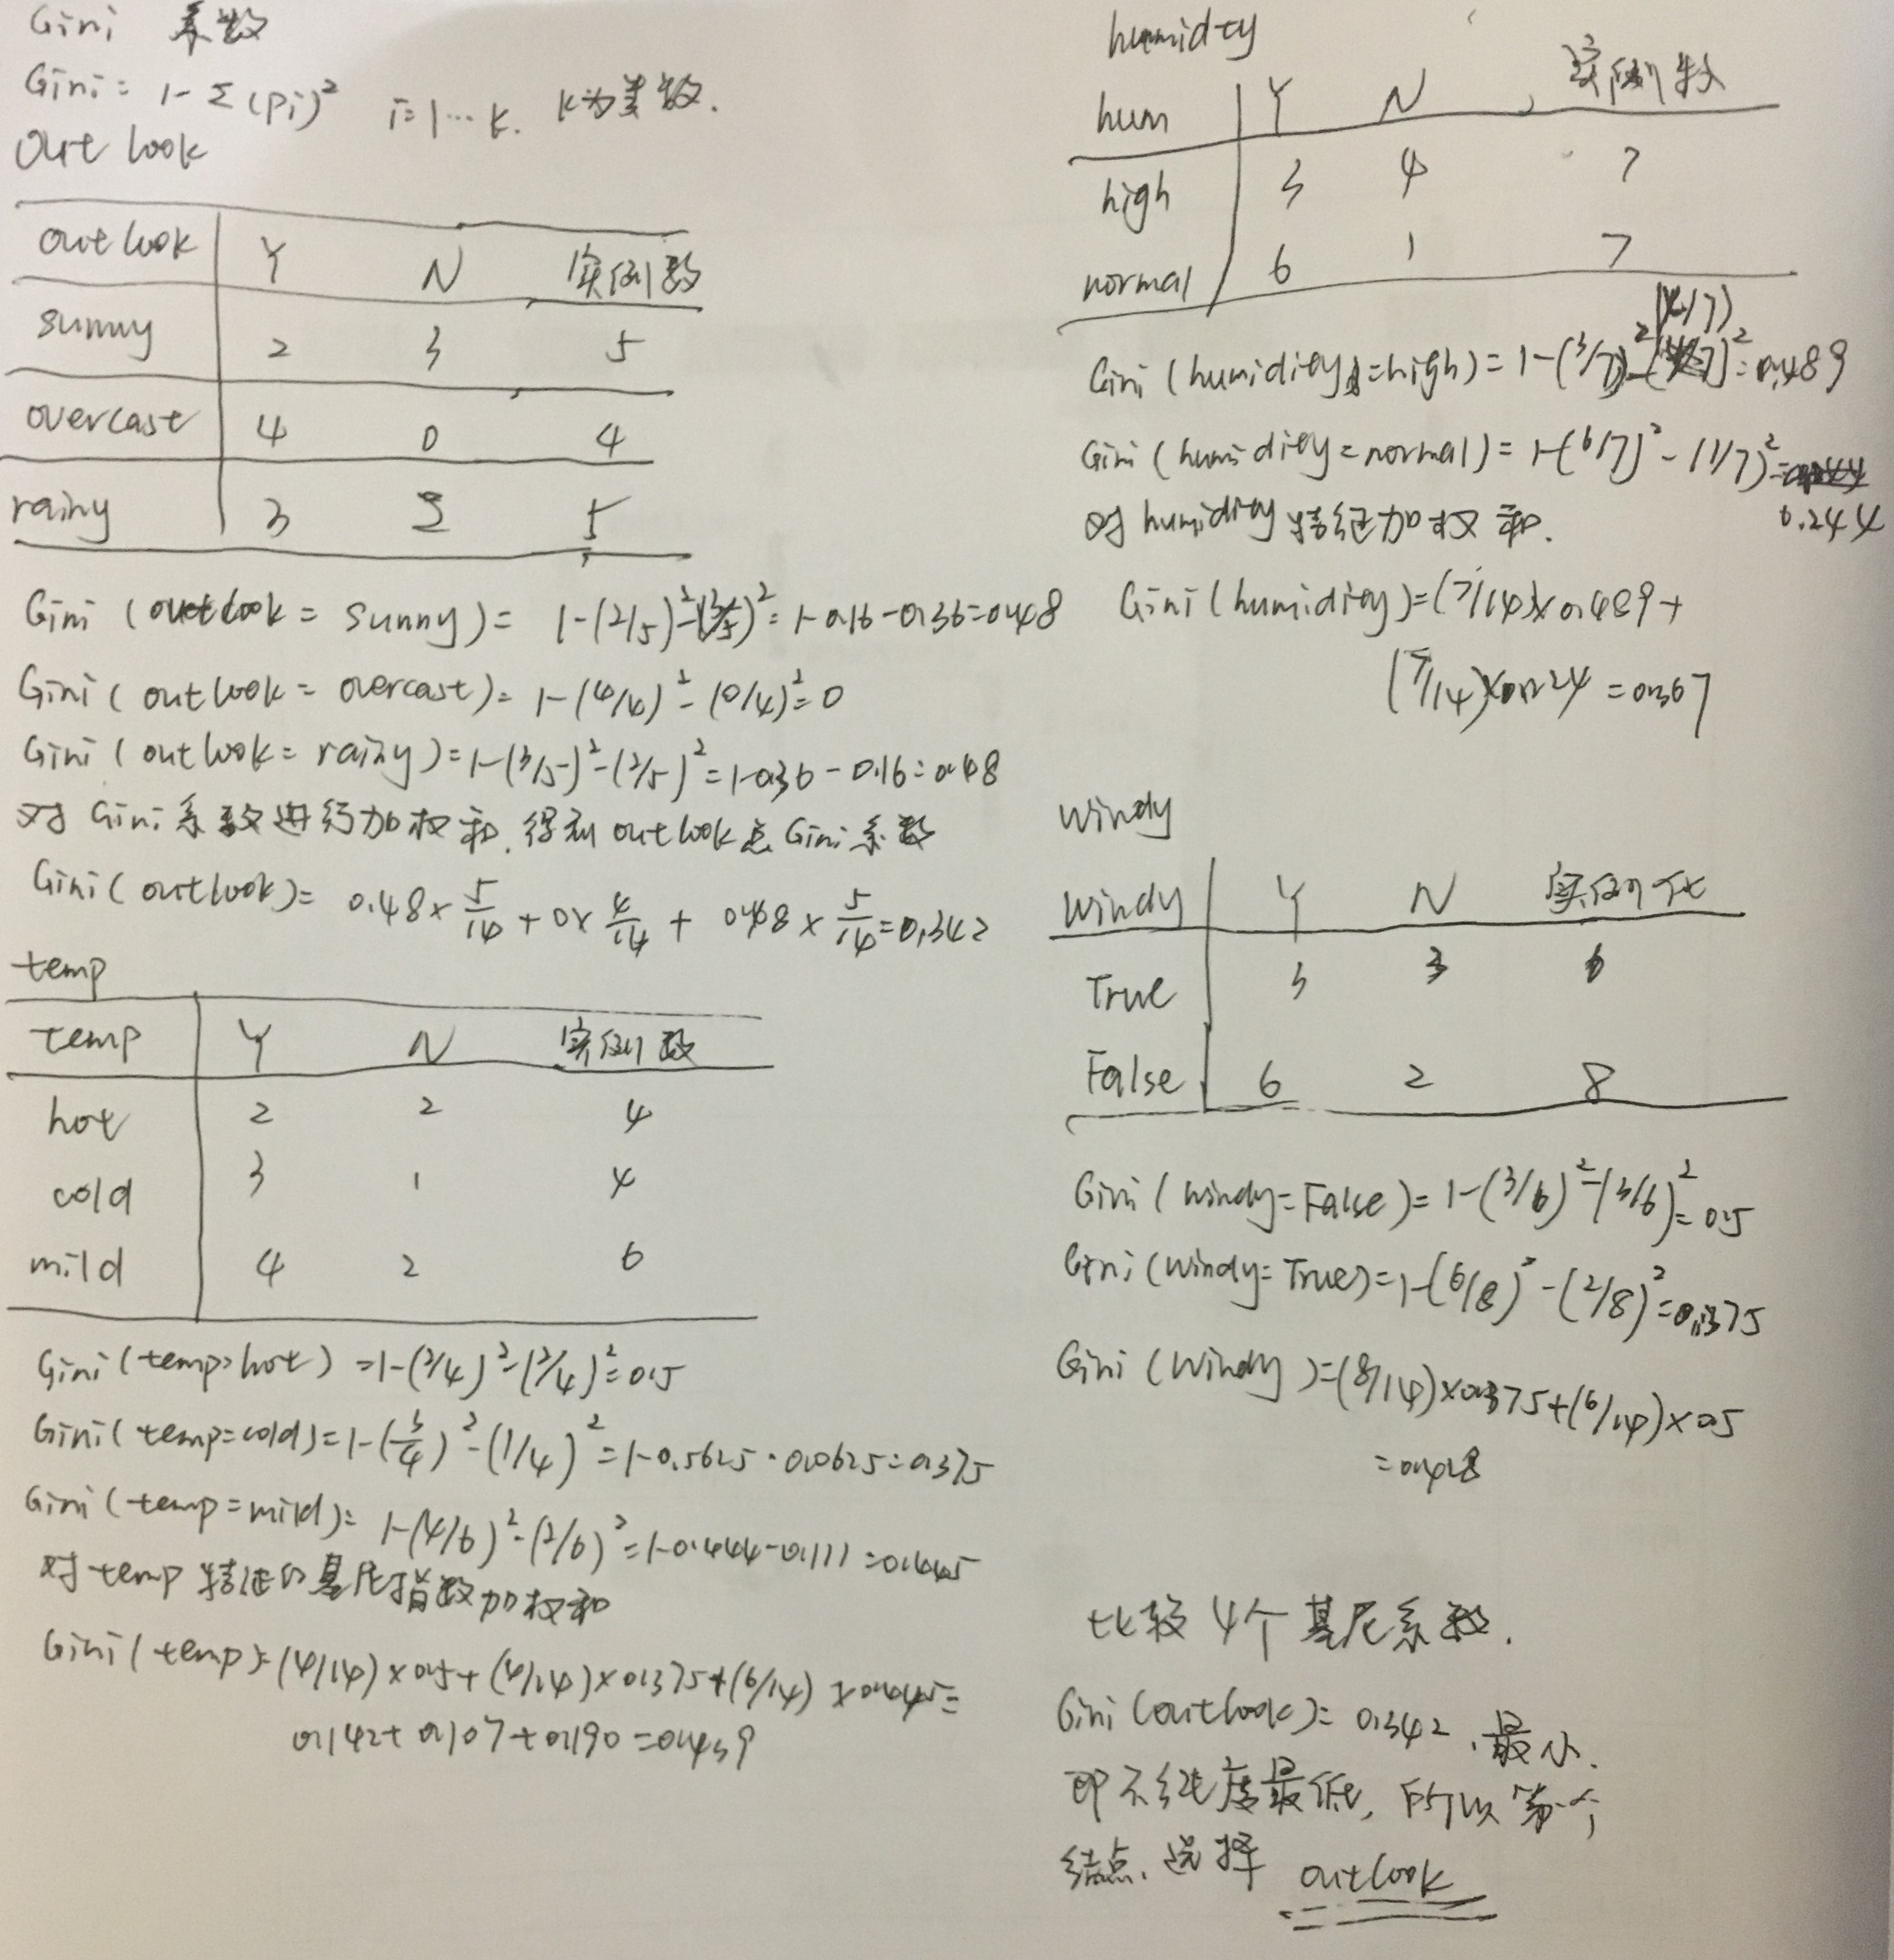 Gini 系数
Gini = 1-Σ(Pi)² i=1…k. k为类数.
Outlook
outlook Y N 实例数
sunny 2 3 5
overcast 4 0 4
rainy 3 2 5
Gini (outlook = sunny) = 1-(2/5)²-(3/5)² = 1-0.16-0.36=0.48
Gini (outlook = overcast) = 1-(4/4)²-(0/4)²=0
Gini (outlook = rainy) = 1-(3/5)²-(2/5)² = 1-0.36-0.16=0.48
对 Gini 系数进行加权和, 得到 outlook 点 Gini 系数
Gini (outlook) = 0.48×5/14 + 0×4/14 + 0.48×5/14 = 0.342
temp
temp Y N 实例数
hot 2 2 4
cold 3 1 4
mild 4 2 6
Gini (temp=hot) = 1-(2/4)²-(2/4)²=0.5
Gini (temp=cold) = 1-(3/4)²-(1/4)² = 1-0.5625-0.0625=0.375
Gini (temp=mild) = 1-(4/6)²-(2/6)² = 1-0.444-0.111=0.445
对 temp 特征的基尼指数加权和
Gini (temp) = (4/14)×0.5+(4/14)×0.375+(6/14)×0.445=
0.142+0.107+0.190=0.439
humidty
hum Y N 实例数
high 3 4 7
normal 6 1 7
(4/7)
Gini (humidity=high) = 1-(3/7)²-²=0.489
Gini (humidity=normal) = 1-(6/7)²-(1/7)²=
0.244
对 humidity 特征加权和.
Gini (humidity) = (7/14)×0.489+
(7/14)×0.244=0.367
windy
windy Y N 实例数
True 3 3 6
False 6 2 8
Gini (windy=False) = 1-(3/6)²-(3/6)²=0.5
Gini (windy=True) = 1-(6/8)²-(2/8)²=0.375
Gini (windy) = (8/14)×0.375+(6/14)×0.5
=0.428
比较 4个基尼系数.
Gini (outlook) = 0.342, 最小.
即不纯度最低, 所以第一个
结点, 选择 outlook